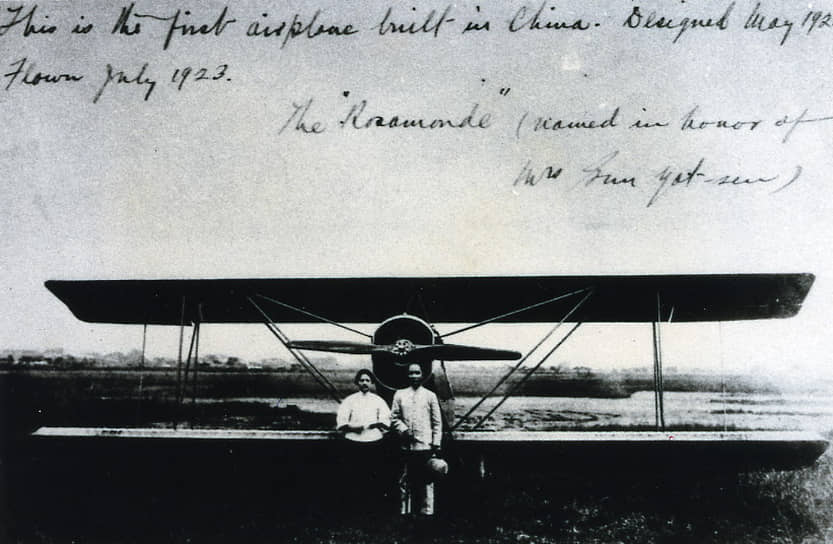 This is the first airplane built in China. Designed May 192
Flown July 1923.
The "Rosamonde" (named in honor of
Mrs Sun Yat-sen)